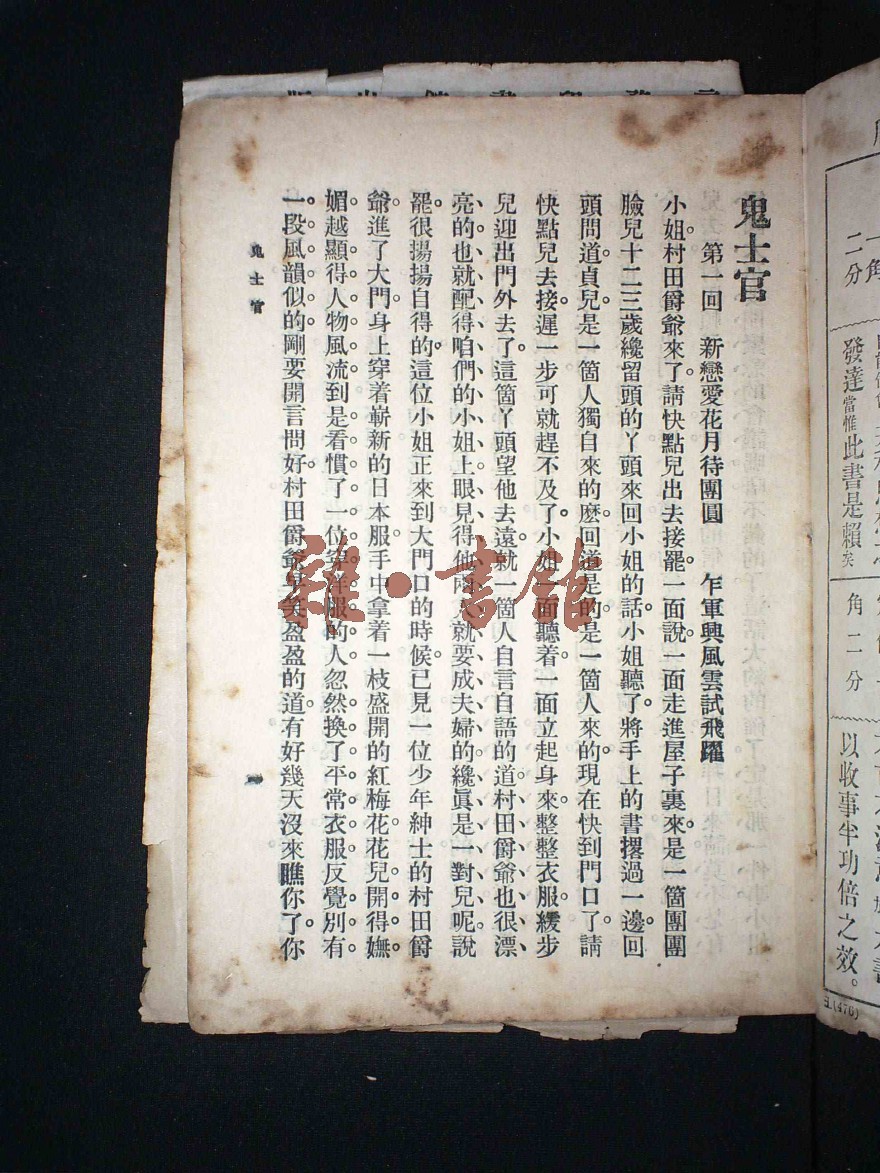 鬼士官
第一回　新戀愛花月待團圓　乍軍興風雲試飛躍
小姐村田爵爺來了。請快點兒出去接罷。一面說一面走進屋子裏來。是一箇團團
臉兒十二三歲纔留頭的丫頭來回小姐的話。小姐聽了。將手上的書撂過一邊。回
頭問道。貞兒。是一箇人獨自來的麽。回道是的。是一箇人來的。現在快到門口了。請
快點兒去接。遲一步可就趕不及了。小姐一面聽着。一面立起身來。整整衣服。緩步
兒迎出門外去了。這箇丫頭望他去遠。就一箇人自言自語的道。村田爵爺也很漂
亮的。也就配得咱們的小姐上。眼見得他兩人就要成夫婦的。纔眞是一對兒呢。說
罷。很揚揚自得的。這位小姐正來到大門口的時候。已見一位少年紳士的村田爵
爺進了大門。身上穿着嶄新的日本服。手中拿着一枝盛開的紅梅花。花兒開得嫵
媚。越顯得人物風流。到是看慣了一位穿洋服的人。忽然換了平常衣服。反覺別有
一段風韻似的。剛要開言問好。村田爵爺早笑盈盈的道。有好幾天沒來瞧你了。你
鬼士官
一
雜·書館
二分
發達當惟此書是賴矣
角二分
以收事半功倍之效。